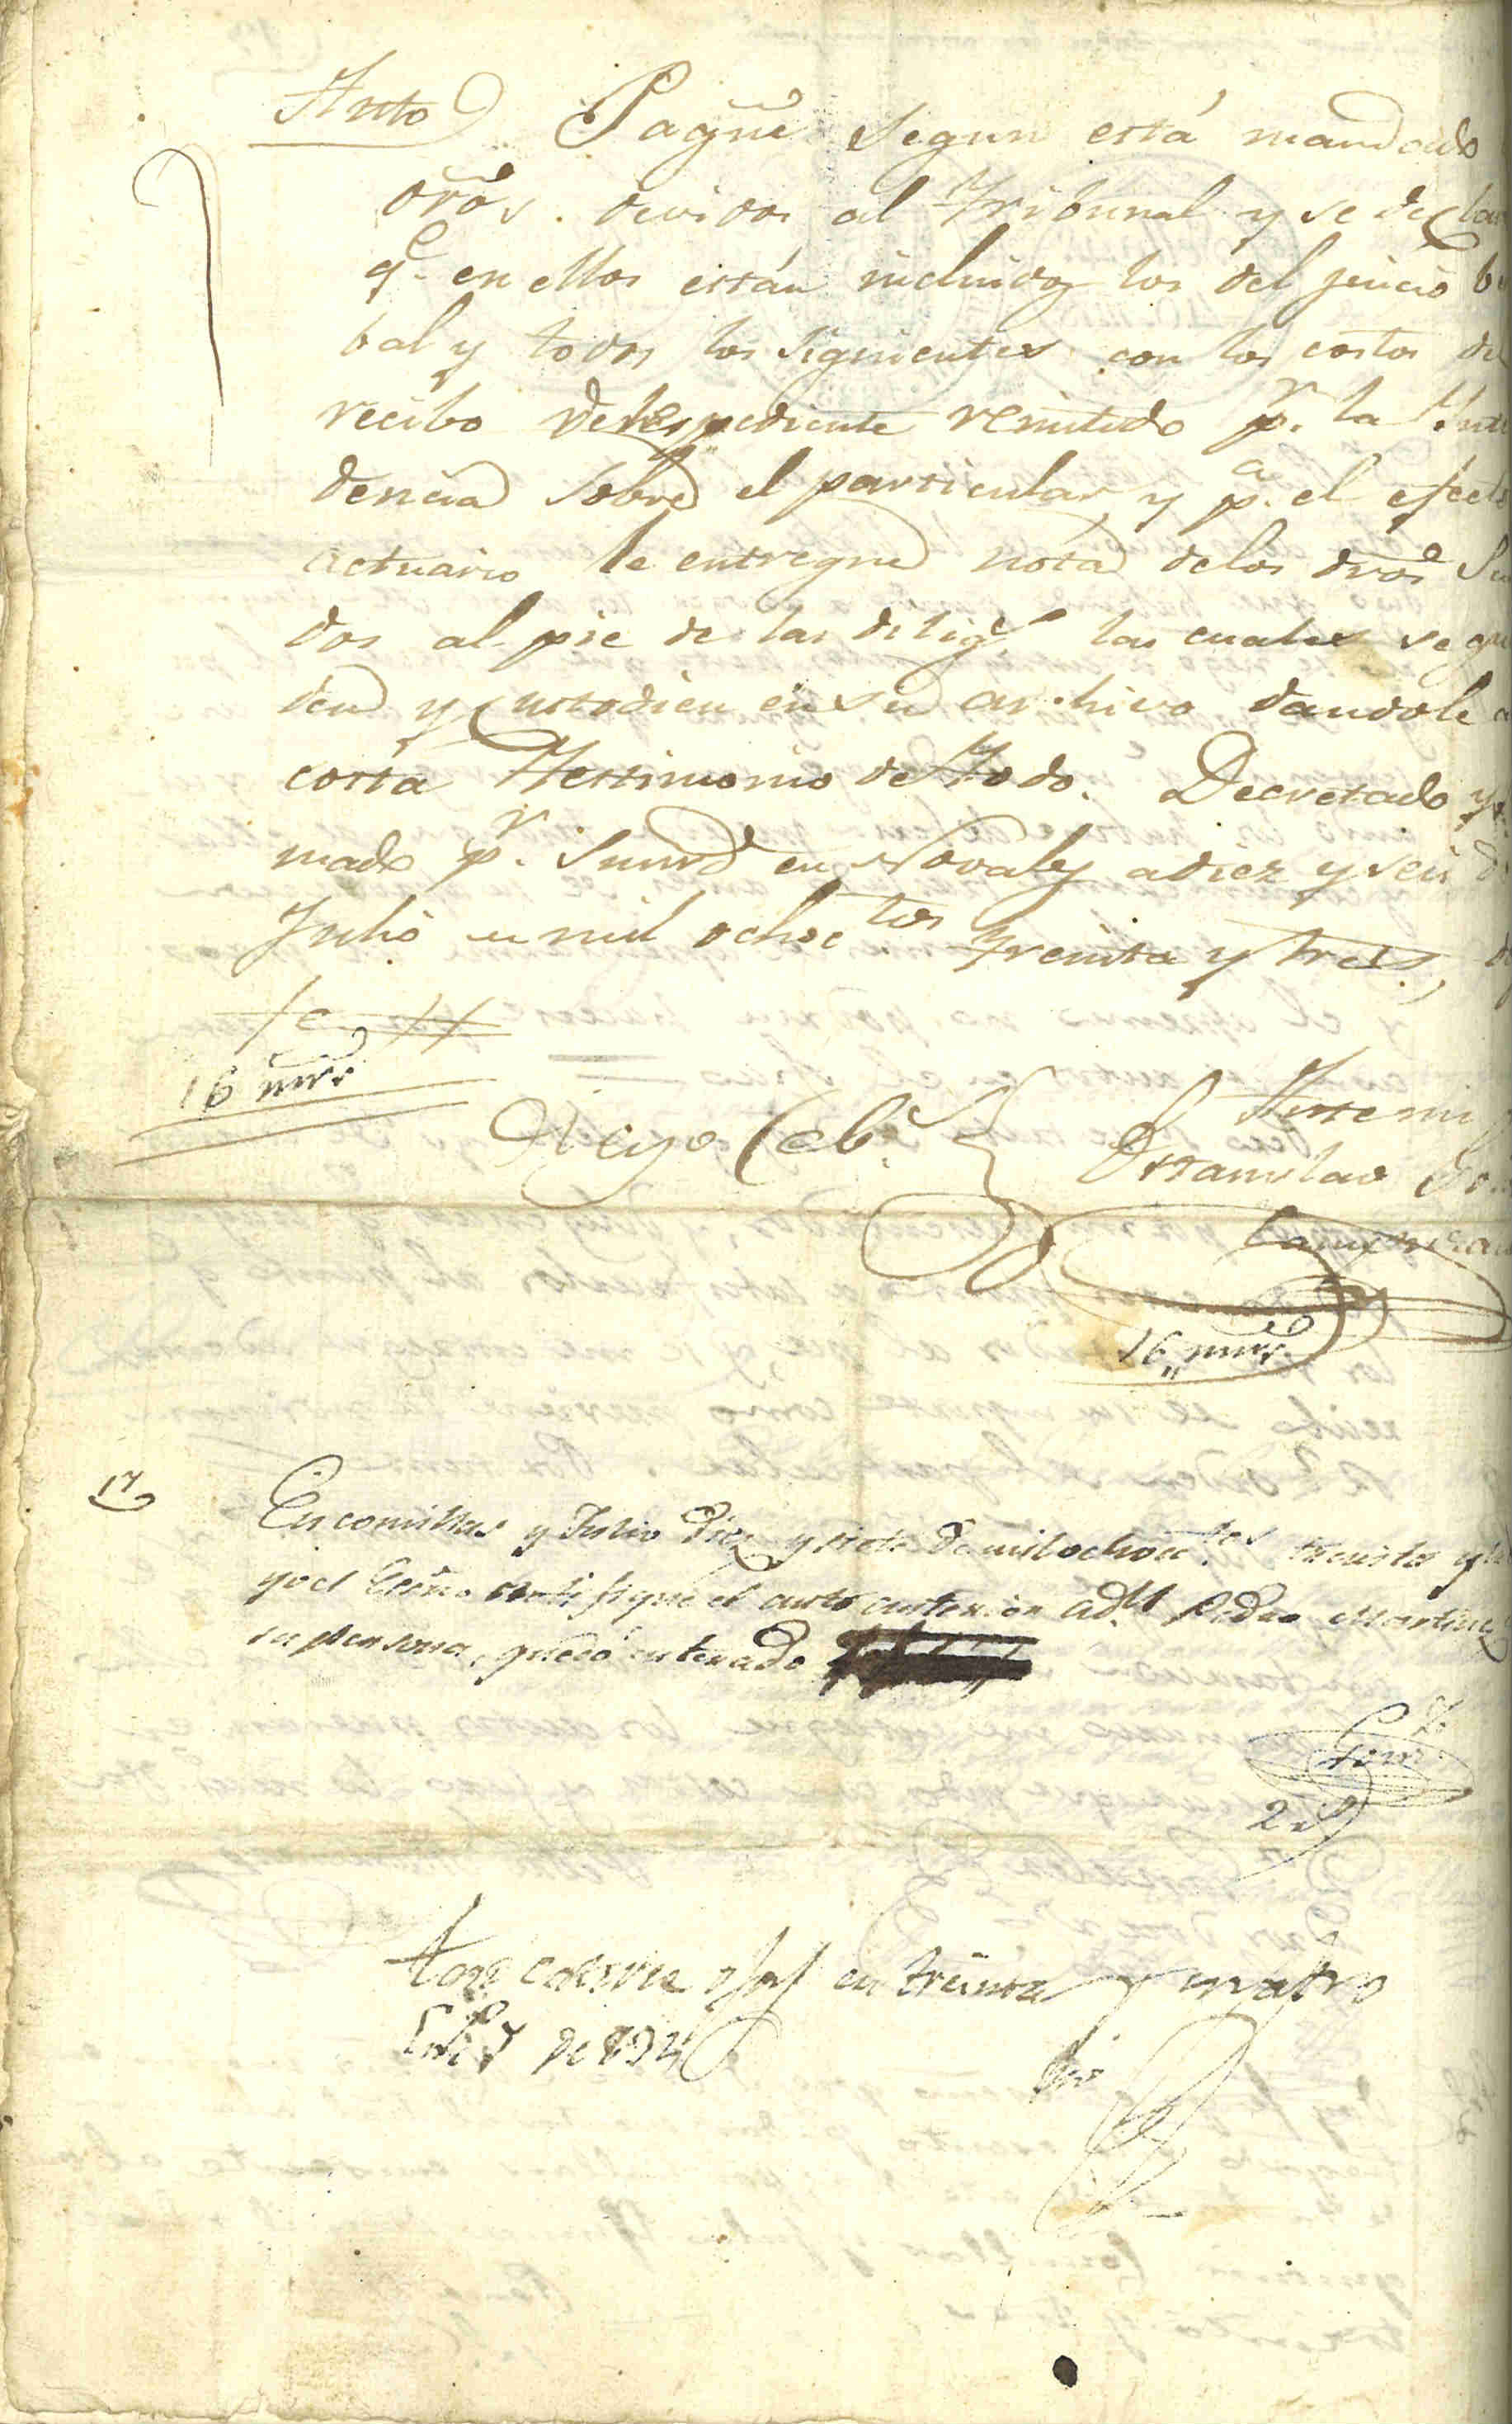 Auto Pagũe segun está mandado
dr̃os. devidos al Tribunal y se decla
q.e en ellos están incluidos los del juicio be
bal y todos los siguientes con los costos de
recibo del espediente remitido p.r la Inte
dencia sobre el particular, y p.a el efecto
actuario le entregue nota de los dr̃os
dos al pie de las dilig.s las cuales se gu
den y custodien en su archivo dandole a
costa Testimonio de Todo. Decretado y
mado p.r Sumrd en Novales a diez y seis d
Julio de mil ochoc.tos treinta y tres,
fe
16 mrs.
Diego Ceb.s
Ante mi
Estanislao
16,, mrs.
17
En comillas y Julio diez y siete de mil ochoc.tos treinta y
yo el Essno. notifiqué el auto anterior a d.n Pedro Martinez
su persona, quedó enterado
2
en treinta y cuatro
de 834